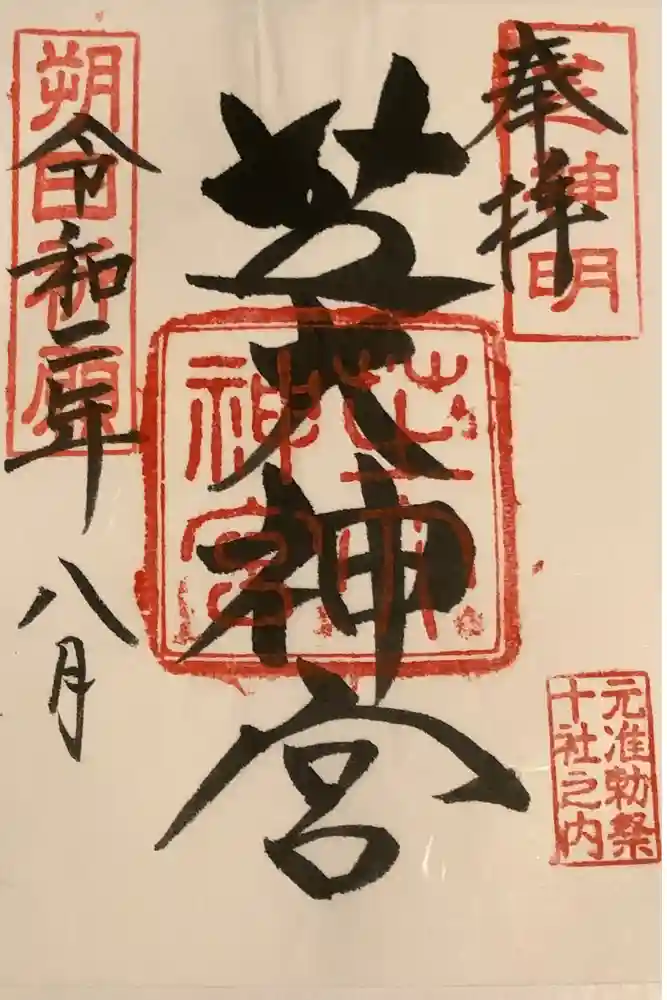 奉拝
芝神明
元准勅祭
十社之内
芝大神宮
芝大
神宮
朔日祈願
令和二年
八月